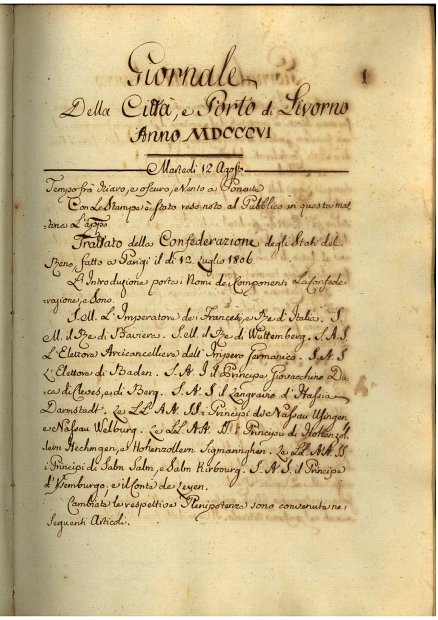 1
Giornale
Della Città, e Porto di Livorno
Anno MDCCCVI
Martedì 12. Agosto
Tempo frà chiaro, e oscuro, e Vento a Ponente
Con le Stampe è stato reso noto al Pubblico in questa mat
tina L'appo
Trattato della Confederazione degli Stati del
Reno, fatto a Parigi il dì 12 Luglio 1806
L'Introduzione porta i Nomi dei Componenti La Confede
razione, e sono
S. M. L'Imperatore de' Francesi, e Re d'Italia. S.
M. il Re di Baviera. S. M. il Re di Wuttemberg. S. A. S
L'Elettore Arcicancelliere dell'Impero Germanico. S. A. S
L'Elettore di Baden. S. A. I il Principe Giovacchino Du
ca di Cleves, e di Berg. S. A. S il Langravio d'Hassia
Darmstadt. Le LL. AA. SS. i Principi de Nassau Usingen
e Nassau Welburg. Le LL. AA. SS i Principi di Hohenzol
lern Hechingen, e Hohenzollern Sigmaringhen. Le LL. AA. SS
i Principi di Salm Salm, e Salm Kirbourg. S. A. S. il Principe
d'Isemburgo, e il Conte de Leyen.
Cambiate le respettive Plenipotenze sono convenute nei
seguenti Articoli.